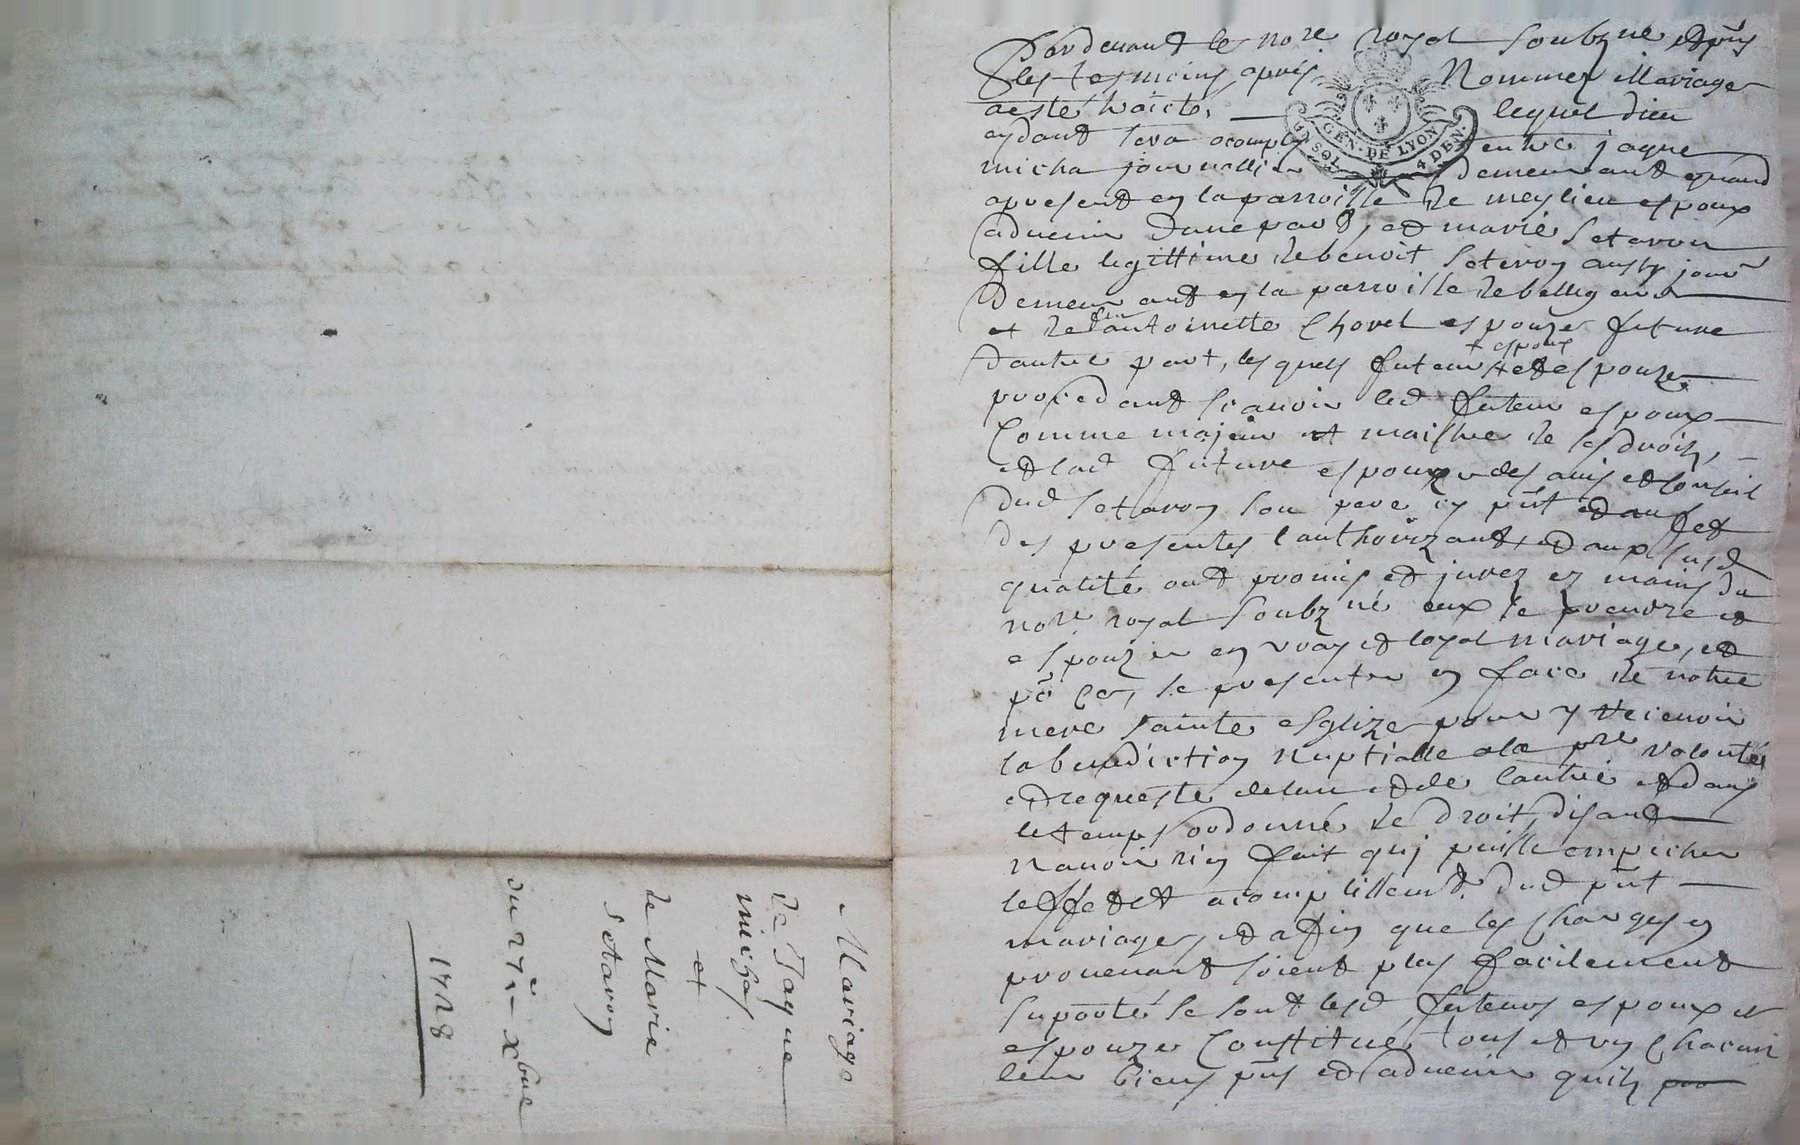 Pardevant le nore royal soubzné et pñs
les tesmoins apres Nommez Mariage
a esté traicté, lequel dieu
aydant sera acomply entre jaque
micha journallier demeurant quand
apresent en la parroisse de meylieu espoux
aduenir dune part, et marie setaron
fille legittime de benoit setaron aussy jourr
demeurant en la parroisse de bellegarde
et de feu antoinette Chovel espouze future
dautre part, lesquels futeurs espoux et espouze
procedant scauoir led futeur espoux
Comme majeur et maistre de ses droitz,
et lad future espouze des auis et conseil
dud setaron son pere icy pñt
des presentes lauthorizant, et aux susd
qualité ont promis et jurez ez mains du
nore royal soubzné eux se prendre et
espouzer en vray et loyal mariage, et
po ce, se presenter en face de notre
mere sainte esglize pour y receuoir
la benediction nuptialle a la pre volonté
et requeste de lun et de lautre et dans
le temps ordonné de droit, disant
nauoir rien fait qui puisse empecher
leffet et acomplissement dud pñt
mariage, et afin que les charges en
prouenant soient plus facilement
suporté se sont lesd futeurs espoux et
espouze Constitué tous et un chacun
leur biens pñs et aduenir quilz
Mariage
de Jaque
michas
et
de Marie
Setaron
du 27e xbre
1728
GEN. DE LYON
4 DEN.